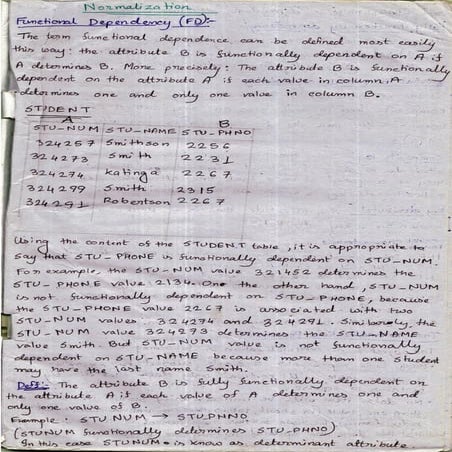 Normalization
Functional Dependency (FD):-
The term functional dependence can be defined most easily
this way: the attribute B is functionally dependent on A if
A determines B. More precisely: The attribute B is functionally
dependent on the attribute A if each value in column A
determines one and only one value in column B.
STUDENT
A B
STU-NUM STU-NAME STU-PHNO
324257 Smithson 2256
324273 Smith 2231
324274 Katinga 2267
324299 Smith 2315
324291 Robertson 2267
Using the content of the STUDENT table, it is appropriate to
say that STU-PHONE is functionally dependent on STU-NUM.
For example, the STU-NUM value 321452 determines the
STU-PHONE value 2134. One the other hand, STU-NUM
is not functionally dependent on STU-PHONE, because
the STU-PHONE value 2267 is associated with two
STU-NUM values: 324274 and 324291. Similarly, the
STU-NUM value 324273 determines the STU-NAME
value Smith. But STU-NUM value is not functionally
dependent on STU-NAME because more than one student
may have the last name Smith.
Deff:- The attribute B is fully functionally dependent on
the attribute A if each value of A determines one and
only one value of B.
Example: STUNUM → STUPHNO
(STUNUM functionally determines STU-PHNO)
In this case STUNUM is know as determinant attribute